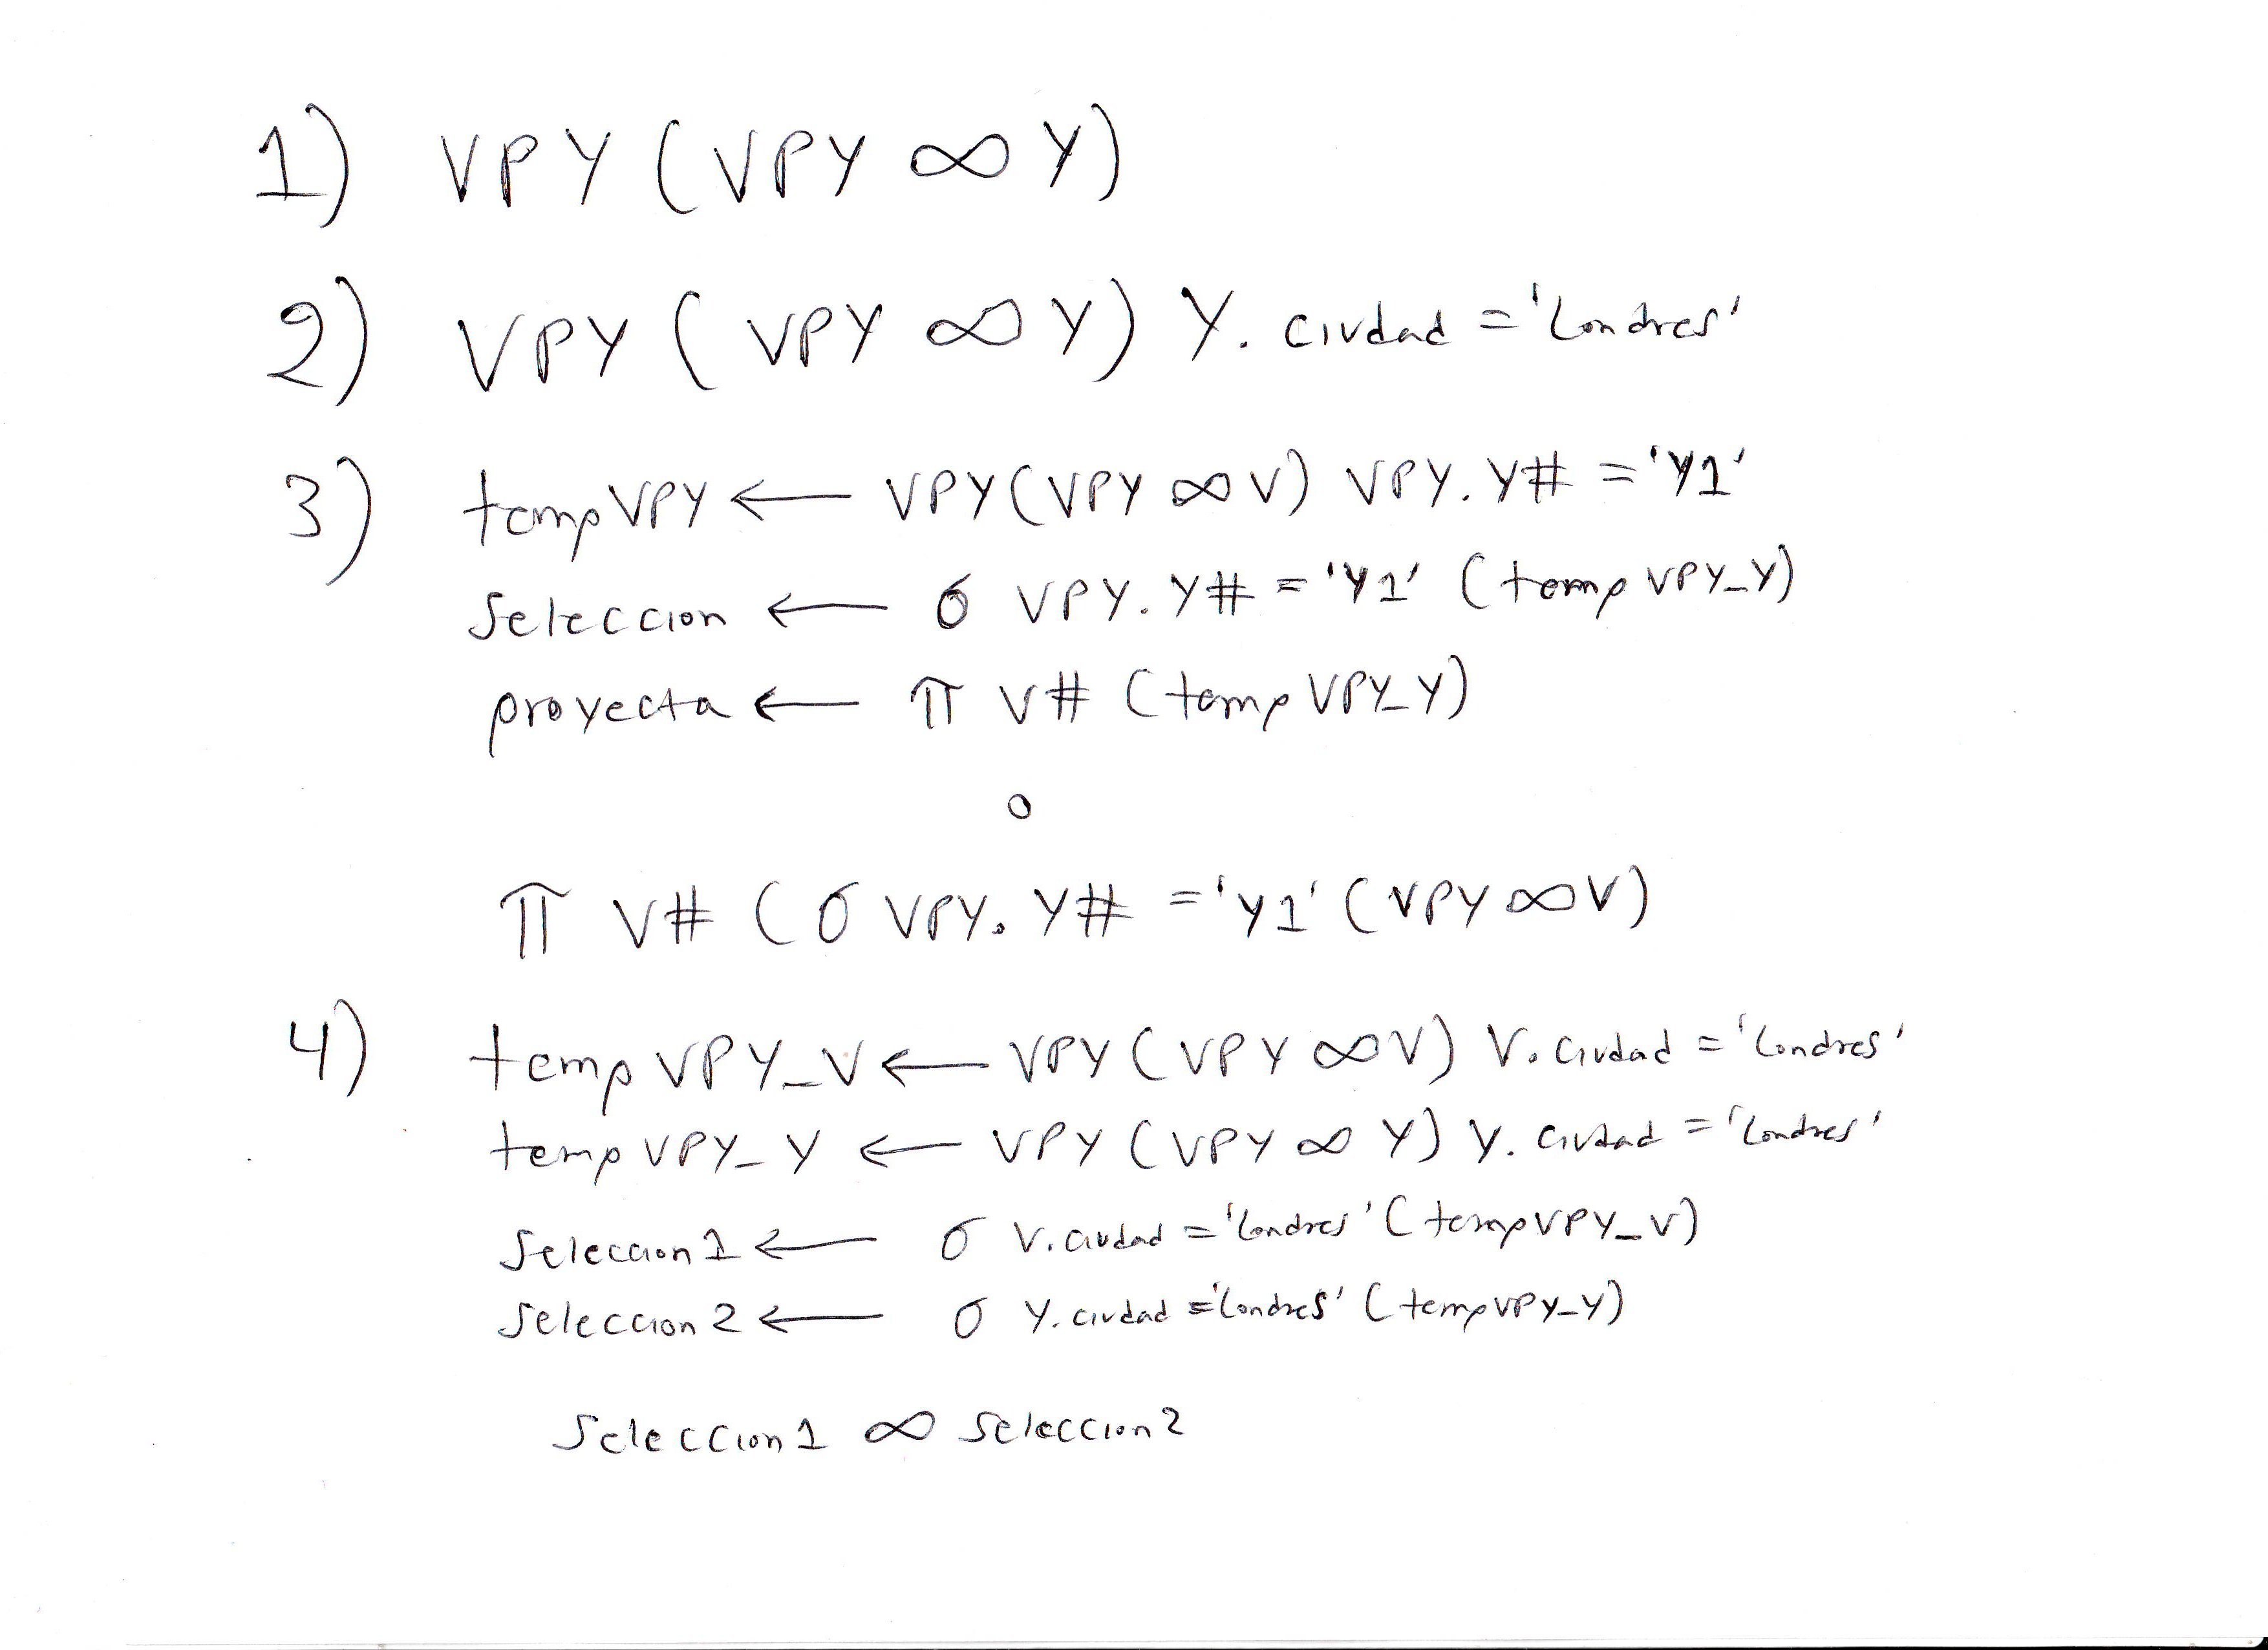 1) VPY (VPY ∞ Y)
2) VPY ( VPY ∞ Y) Y. Ciudad = 'Londres'
3) tempVPY ← VPY(VPY ∞ V) VPY. Y# = 'Y1'
Seleccion ← σ VPY. Y# = 'Y1' (temp VPY_Y)
proyecta ← π V# (temp VPY_Y)
o
π V# (σ VPY. Y# = 'Y1' (VPY ∞ V)
4) temp VPY_V ← VPY (VPY ∞ V) V. Ciudad = 'Londres'
temp VPY_Y ← VPY (VPY ∞ Y) Y. Ciudad = 'Londres'
Seleccion 1 ← σ V. ciudad = 'Londres' (temp VPY_V)
Seleccion 2 ← σ Y. ciudad = 'Londres' (temp VPY_Y)
Seleccion 1 ∞ Seleccion 2